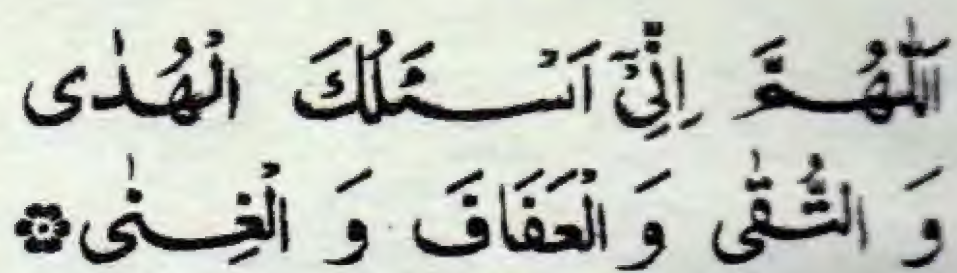 اَللّٰهُمَّ اِنِّیْٓ اَسْئَلُكَ الْهُدٰی
وَ التُّقٰی وَ الْعَفَافَ وَ الْغِنٰی